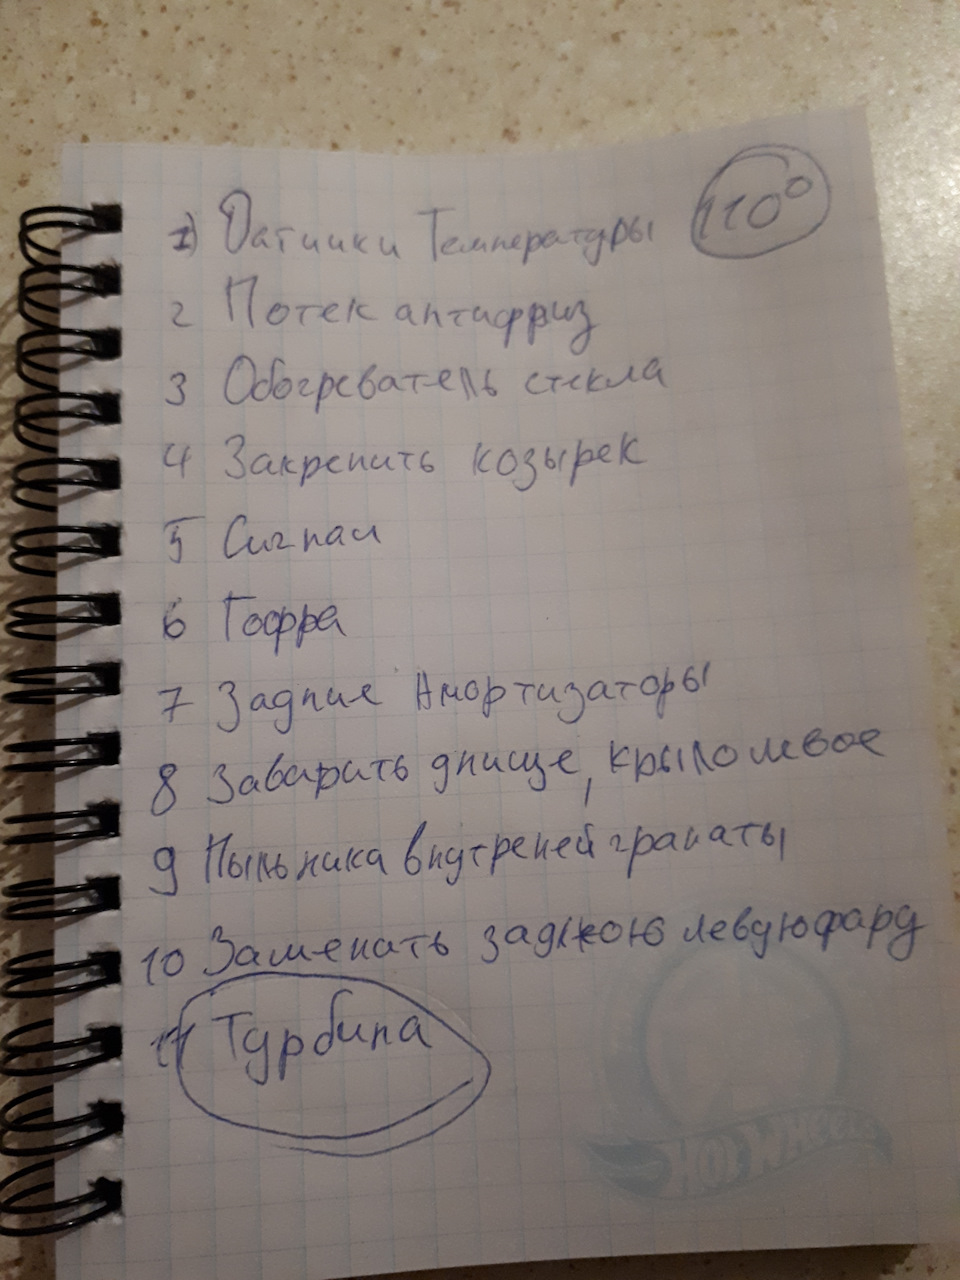 1) Датчики Температуры 110°
2 Потек антифриз
3 Обогреватель стекла
4 Закрепить козырек
5 Сигнал
6 Гофра
7 Задние Амортизаторы
8 Заварить днище, крыло левое
9 Пыльника внутреней гранаты
10 Заменать заднюю левую фару
11 Турбина
HOT WHEELS